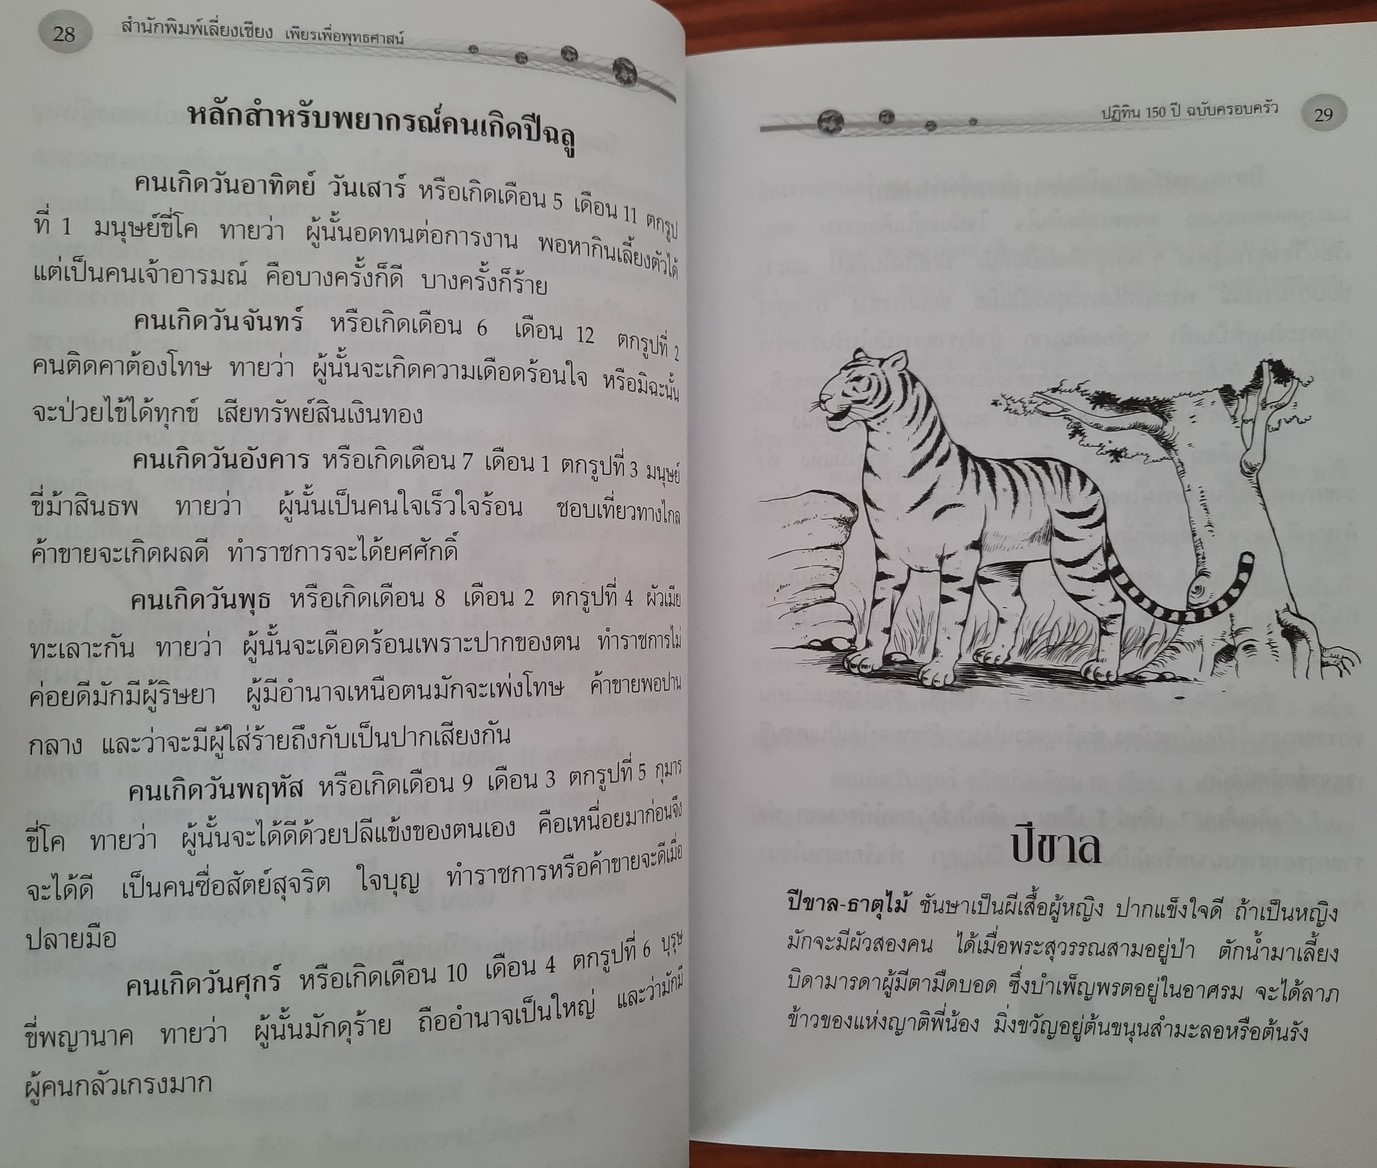 28
สำนักพิมพ์เลี่ยงเชียง เพียรเพื่อพุทธศาสน์
หลักสำหรับพยากรณ์คนเกิดปีฉลู
คนเกิดวันอาทิตย์ วันเสาร์ หรือเกิดเดือน 5 เดือน 11 ตกรูป
ที่ 1 มนุษย์ขี่โค ทายว่า ผู้นั้นอดทนต่อการงาน พอหากินเลี้ยงตัวได้
แต่เป็นคนเจ้าอารมณ์ คือบางครั้งก็ดี บางครั้งก็ร้าย
คนเกิดวันจันทร์ หรือเกิดเดือน 6 เดือน 12 ตกรูปที่ 2
คนติดคาต้องโทษ ทายว่า ผู้นั้นจะเกิดความเดือดร้อนใจ หรือมิฉะนั้น
จะป่วยไข้ได้ทุกข์ เสียทรัพย์สินเงินทอง
คนเกิดวันอังคาร หรือเกิดเดือน 7 เดือน 1 ตกรูปที่ 3 มนุษย์
ขี่ม้าสินธพ ทายว่า ผู้นั้นเป็นคนใจเร็วใจร้อน ชอบเที่ยวทางไกล
ค้าขายจะเกิดผลดี ทำราชการจะได้ยศศักดิ์
คนเกิดวันพุธ หรือเกิดเดือน 8 เดือน 2 ตกรูปที่ 4 ผัวเมีย
ทะเลาะกัน ทายว่า ผู้นั้นจะเดือดร้อนเพราะปากของตน ทำราชการไม่
ค่อยดีมักมีผู้ริษยา ผู้มีอำนาจเหนือตนมักจะเพ่งโทษ ค้าขายพอปาน
กลาง และว่าจะมีผู้ใส่ร้ายถึงกับเป็นปากเสียงกัน
คนเกิดวันพฤหัส หรือเกิดเดือน 9 เดือน 3 ตกรูปที่ 5 กุมาร
ขี่โค ทายว่า ผู้นั้นจะได้ดีด้วยปลีแข้งของตนเอง คือเหนื่อยมาก่อนจึง
จะได้ดี เป็นคนซื่อสัตย์สุจริต ใจบุญ ทำราชการหรือค้าขายจะดีเมื่อ
ปลายมือ
คนเกิดวันศุกร์ หรือเกิดเดือน 10 เดือน 4 ตกรูปที่ 6 บุรุษ
ขี่พญานาค ทายว่า ผู้นั้นมักดุร้าย ถืออำนาจเป็นใหญ่ และว่ามักมี
ผู้คนกลัวเกรงมาก
ปฏิทิน 150 ปี ฉบับครอบครัว
29
ปีขาล
ปีขาล-ธาตุไม้ ชันษาเป็นผีเสื้อผู้หญิง ปากแข็งใจดี ถ้าเป็นหญิง
มักจะมีผัวสองคน ได้เมื่อพระสุวรรณสามอยู่ป่า ตักน้ำมาเลี้ยง
บิดามารดาผู้มีตามืดบอด ซึ่งบำเพ็ญพรตอยู่ในอาศรม จะได้ลาภ
ข้าวของแห่งญาติพี่น้อง มิ่งขวัญอยู่ต้นขนุนสำมะลอหรือต้นรัง